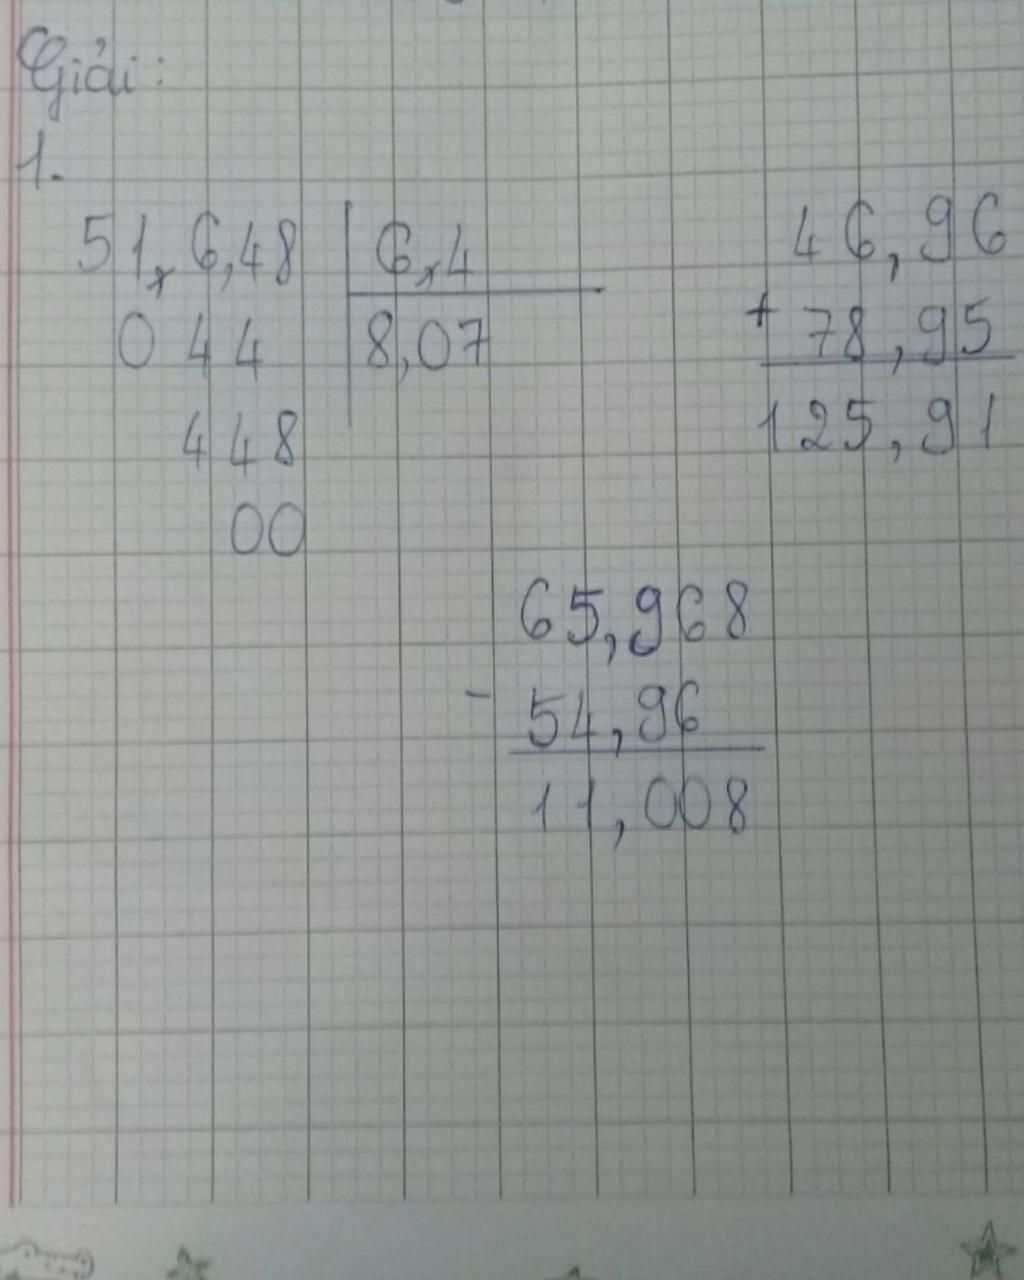 Giải:
1.
51,6,48 | 6,4
044 | 8,07
448
00
46,96
+ 78,95
125,91
65,968
- 54,96
11,008